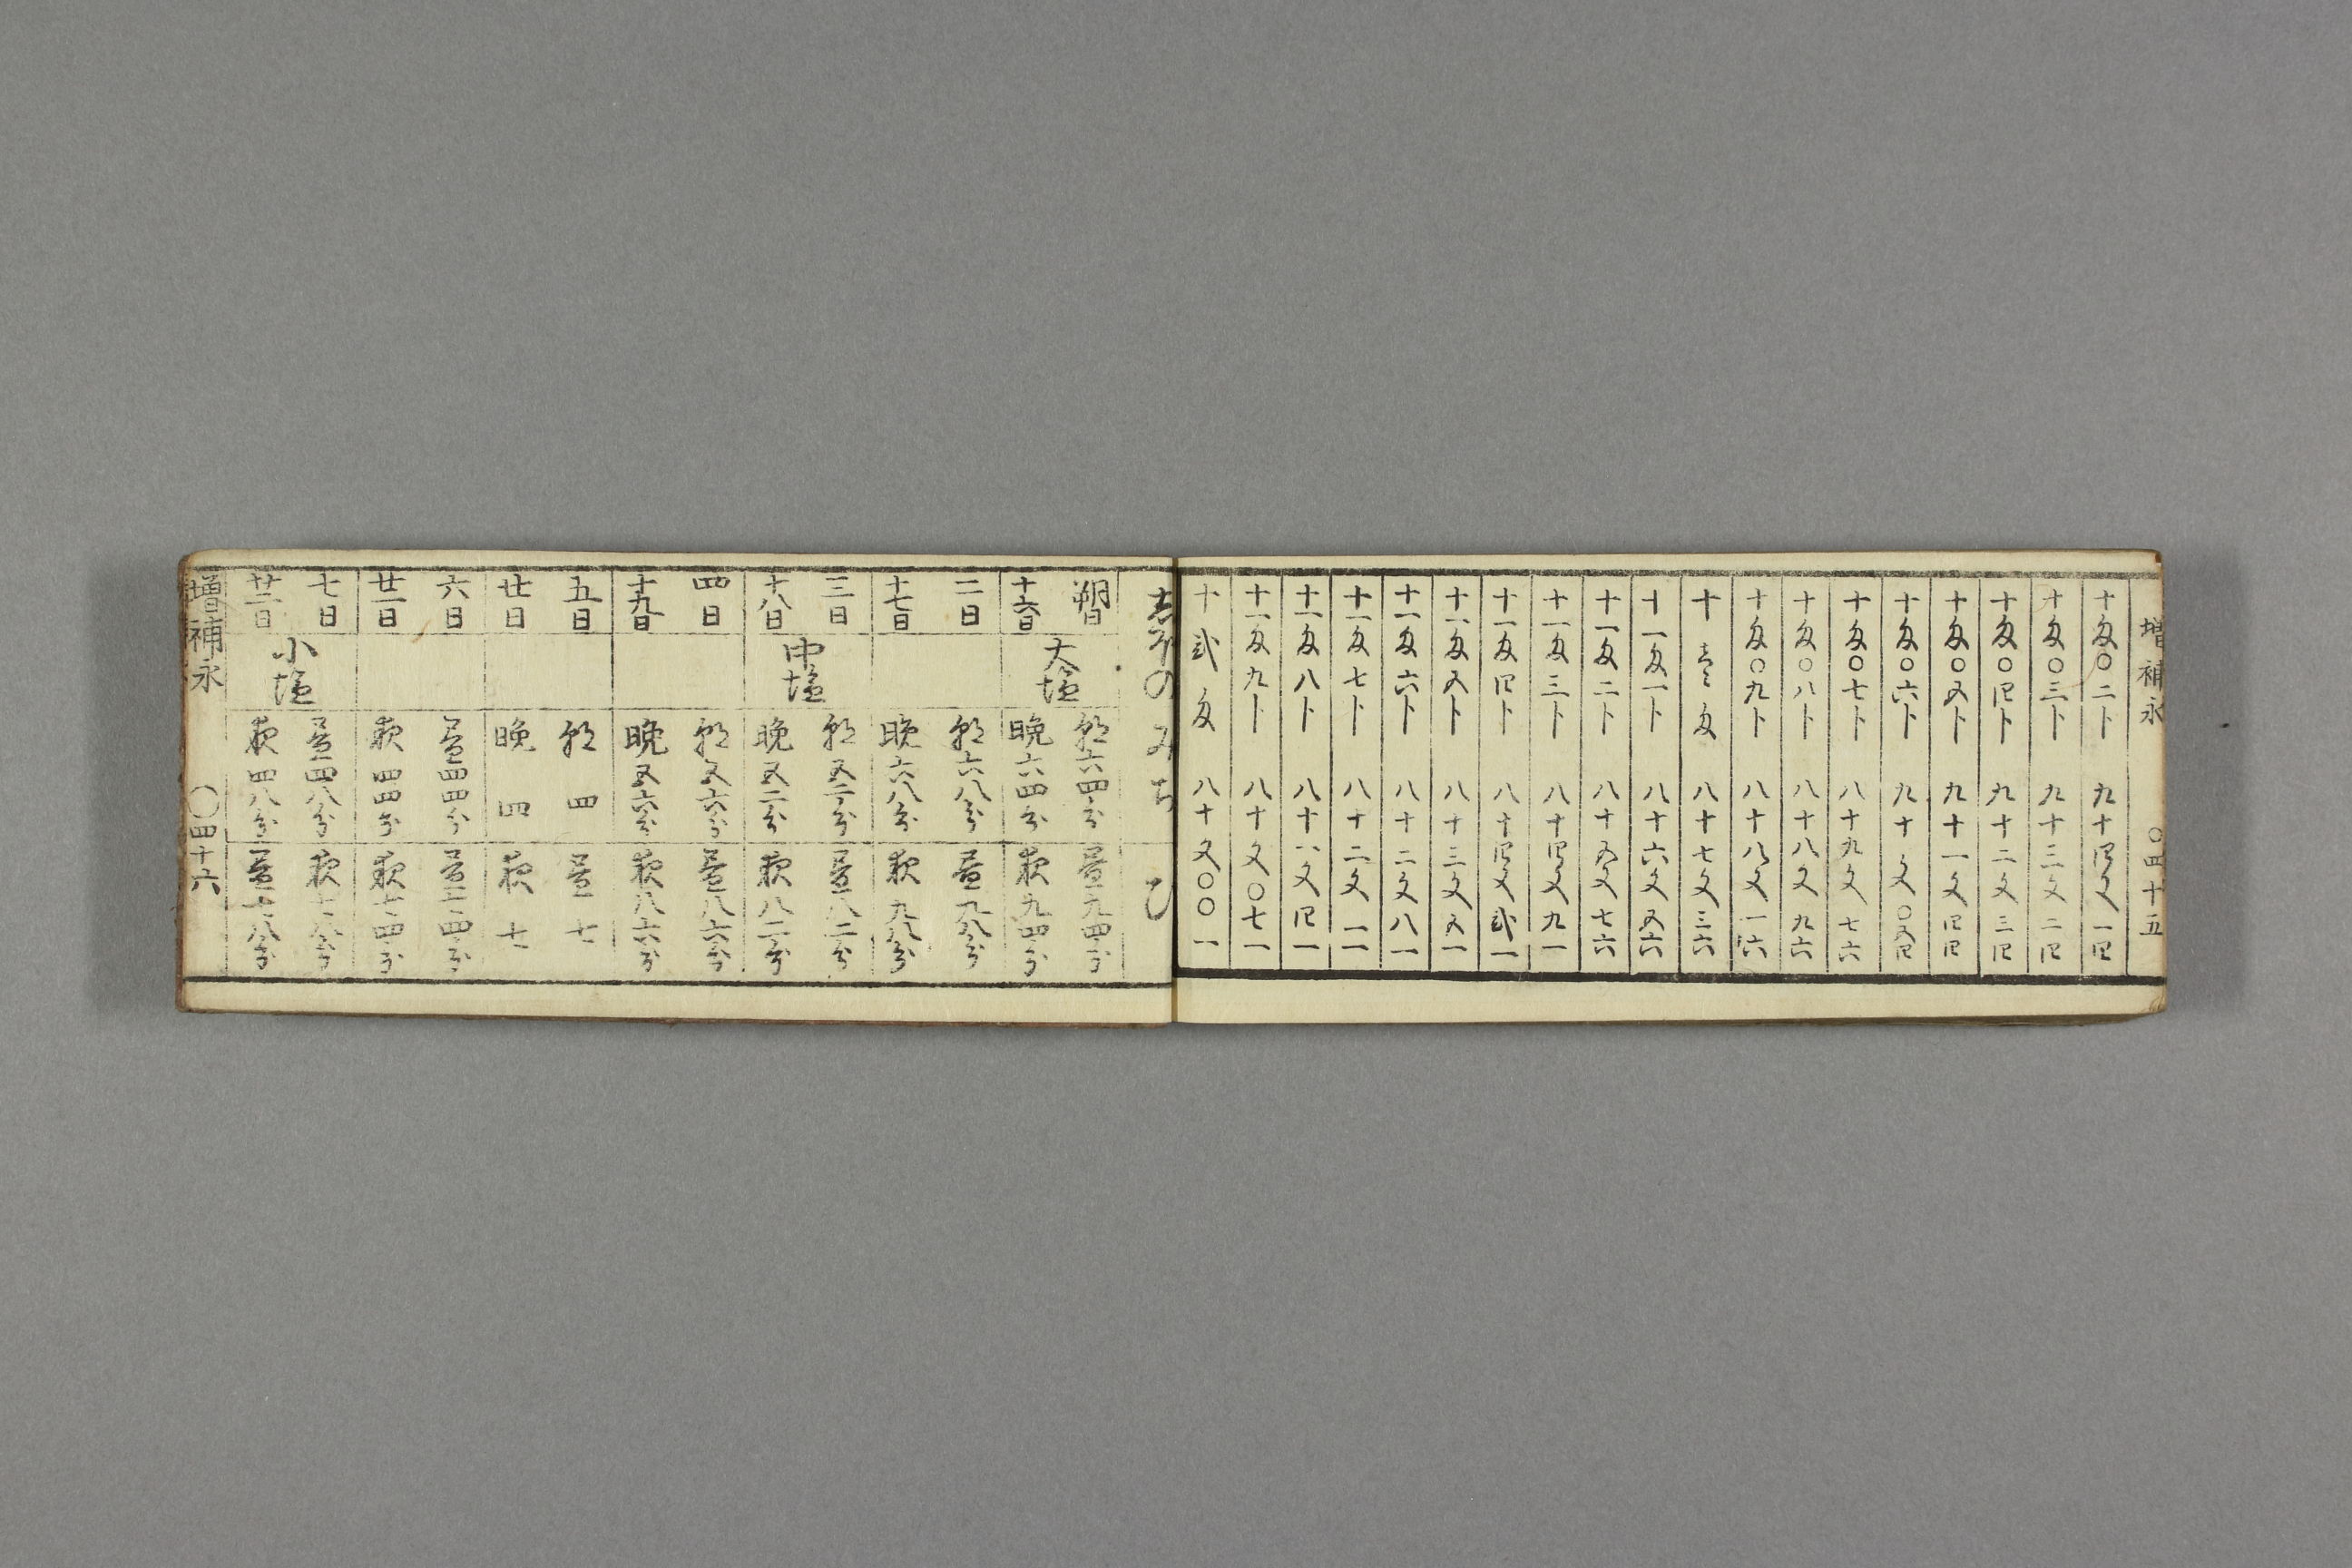 増補永 〇四十五
十匁〇二卜 九十四文一四
十匁〇三卜 九十三文二四
十匁〇四卜 九十二文三四
十匁〇五卜 九十一文四四
十匁〇六卜 九十文〇五四
十匁〇七卜 八十九文七六
十匁〇八卜 八十八文九六
十匁〇九卜 八十八文一六
十壱匁 八十七文三六
十一匁一卜 八十六文五六
十一匁二卜 八十五文七六
十一匁三卜 八十四文九一
十一匁四卜 八十四文弐一
十一匁五卜 八十三文五一
十一匁六卜 八十二文八一
十一匁七卜 八十二文一一
十一匁八卜 八十一文四一
十一匁九卜 八十文〇七一
十弐匁 八十文〇〇一
志ほのみちひ
朔日 大塩 朝六四分 昼九四分
十六日 晩六四分 夜九四分
二日 朝六八分 昼九八分
十七日 晩六八分 夜九八分
三日 中塩 朝五二分 昼八二分
十八日 晩五二分 夜八二分
四日 朝五六分 昼八六分
十九日 晩五六分 夜八六分
五日 朝四 昼七
廿日 晩四 夜七
六日 昼四四分 昼七四分
廿一日 夜四四分 夜七四分
七日 小塩 昼四八分 夜七八分
廿二日 夜四八分 昼七八分
増補永 〇四十六